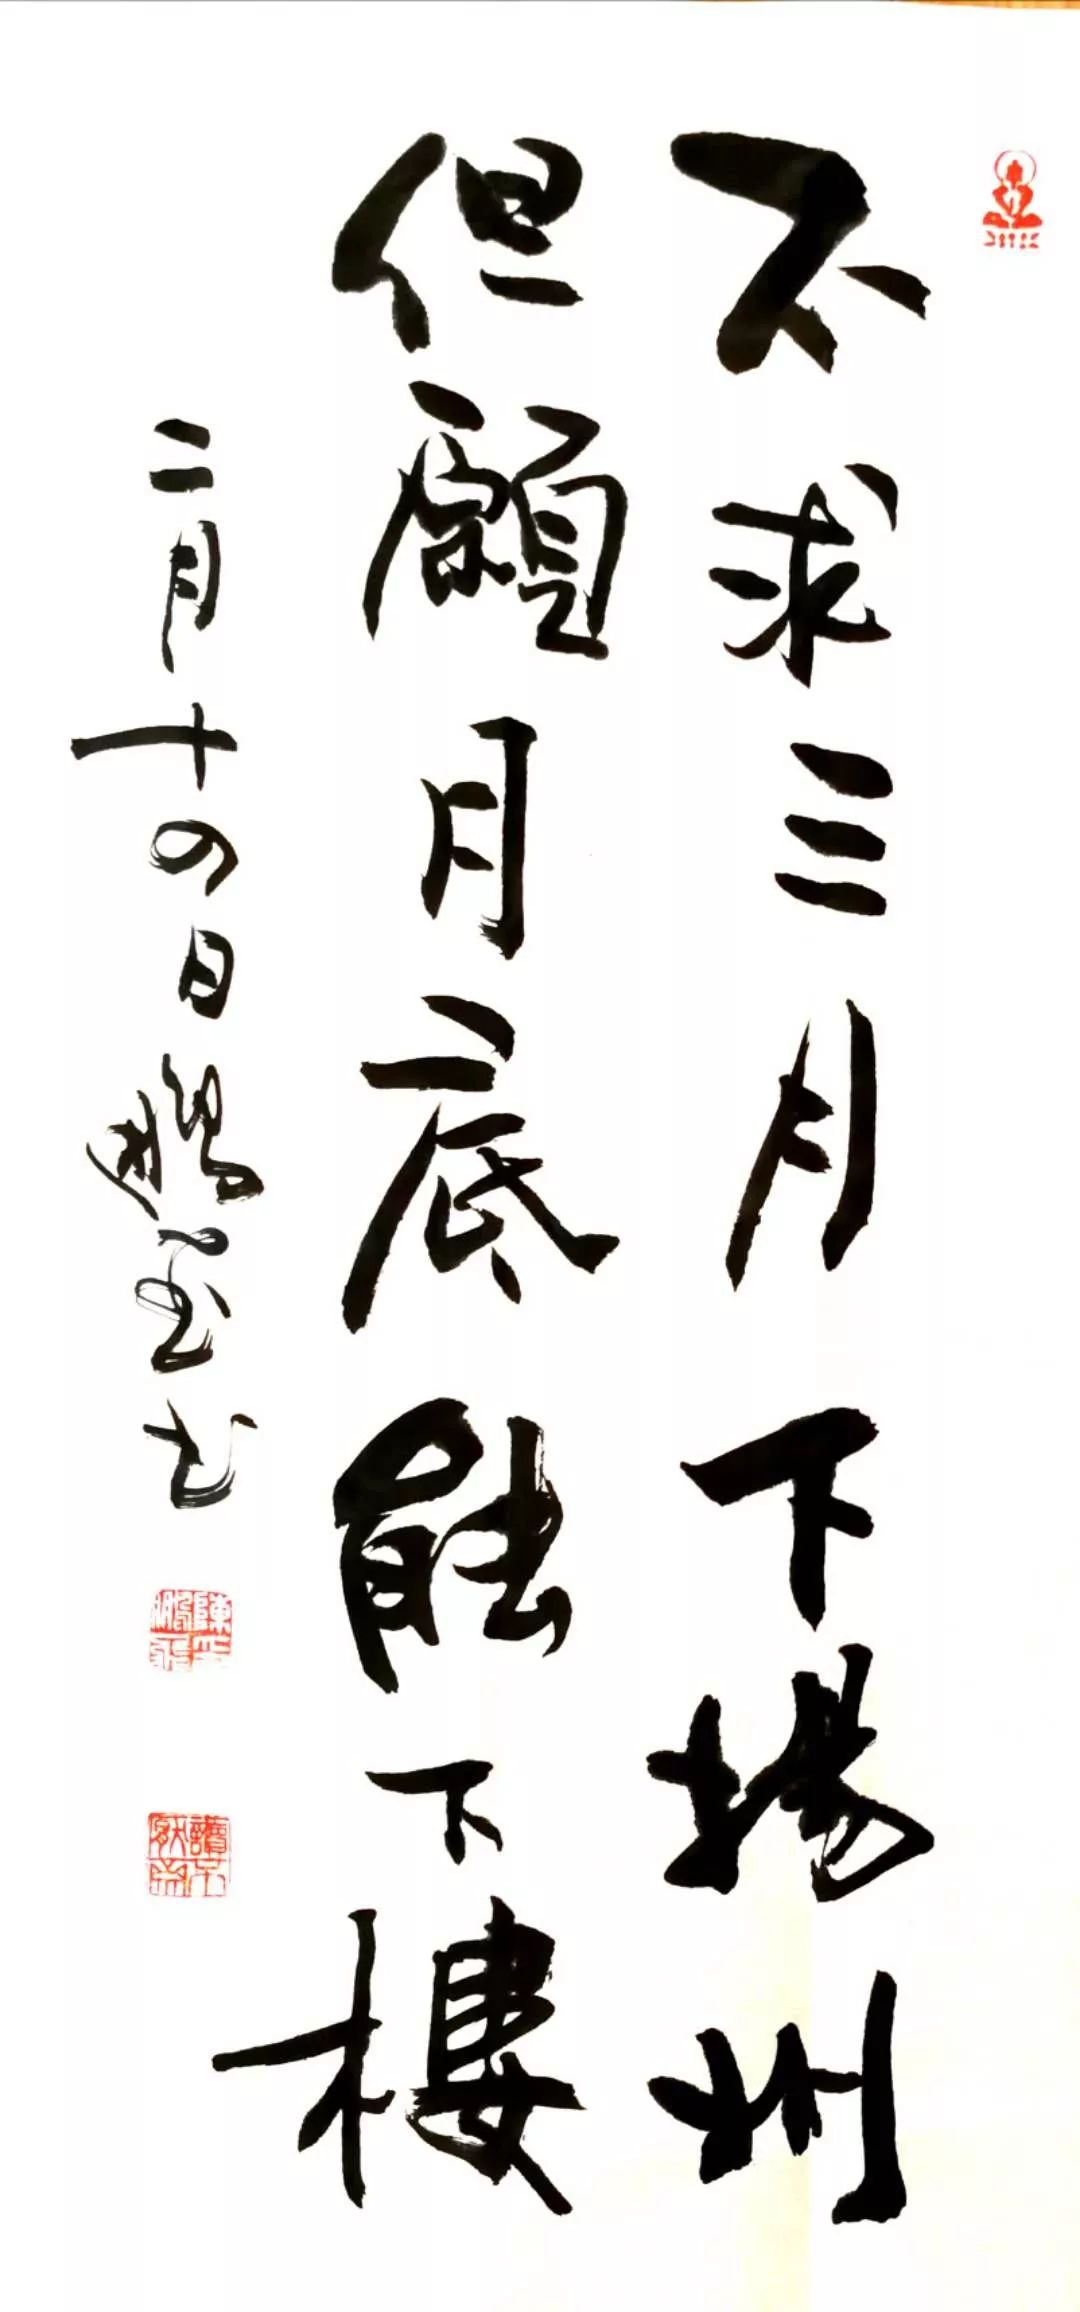 不求三月下揚州
但願月底能下樓
二月十四日鵬墨書